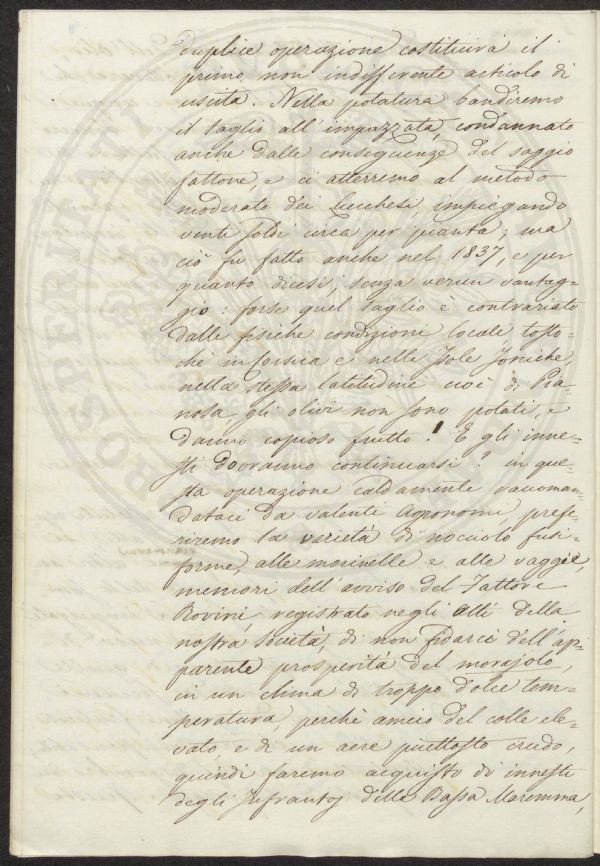 duplice operazione costituirà il
primo non indifferente articolo di
uscita. Nella potatura bandiremo
il taglio all'impazzata, condannato
anche dalle conseguenze del saggio
fattone, e ci atterremo al metodo
moderato dei Lucchesi, impiegando
venti soldi circa per pianta; ma
ciò fu fatto anche nel 1837, e per
quanto dicesi, senza verun vantag-
gio: forse quel taglio è contrariato
dalle fisiche condizioni locali tosto-
chè in Corsica e nelle Isole Joniche,
nella stessa latitudine cioè di Pia-
nosa, gli olivi non sono potati, e
danno copioso frutto! E gli inne-
sti dovranno continuarsi? in que-
sta operazione caldamente raccoman-
dataci da valente Agronomi, prefe-
riremo la varietà di nocciolo fusi-
forme, alle morinelle e alle raggie,
memori dell'avviso del Fattore
Bovini registrato negli Atti della
nostra Società, di non fidarci dell'ap-
parente prosperità del morajolo,
in un clima di troppo dolce tem-
peratura, perchè amico del colle ele-
vato e di un aere piuttosto crudo,
quindi faremo acquisto di innesti
degli Infrantoj della Bassa Maremma,
PROSPERITATI